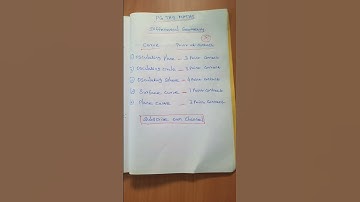 PG TRB MATHS
Differential Geometry
Curve Point of contact
① Osculating Plane - 3 Point contact
② Osculating Circle - 3 Point contact
③ Osculating Sphere - 4 Point contact
④ Surface curve - 1 Point contact
⑤ Plane curve - 2 Point contact
Subscribe our channel